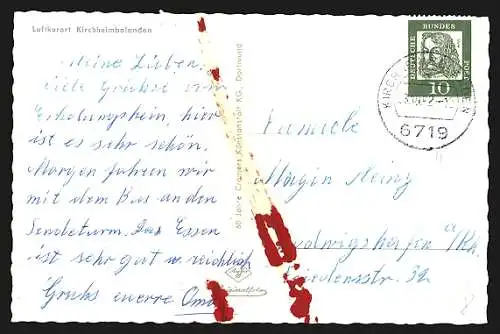 Luftkurort Kirchheimbolanden
Meine Lieben,
viele Grüße vom
Erholungsheim, hier
ist es sehr schön.
Morgen fahren wir
mit dem Bus an den
Sendeturm. Das Essen
ist sehr gut u. reichlich
Gruhs euerre Oma
60 Jahre Cramers Kunstanstalt KG, Dortmund
DEUTSCHE BUNDES POST
10
KIRCH
6719
Familie
Heinz
Ludwigshafen a/Rh.
Friedensstr. 32